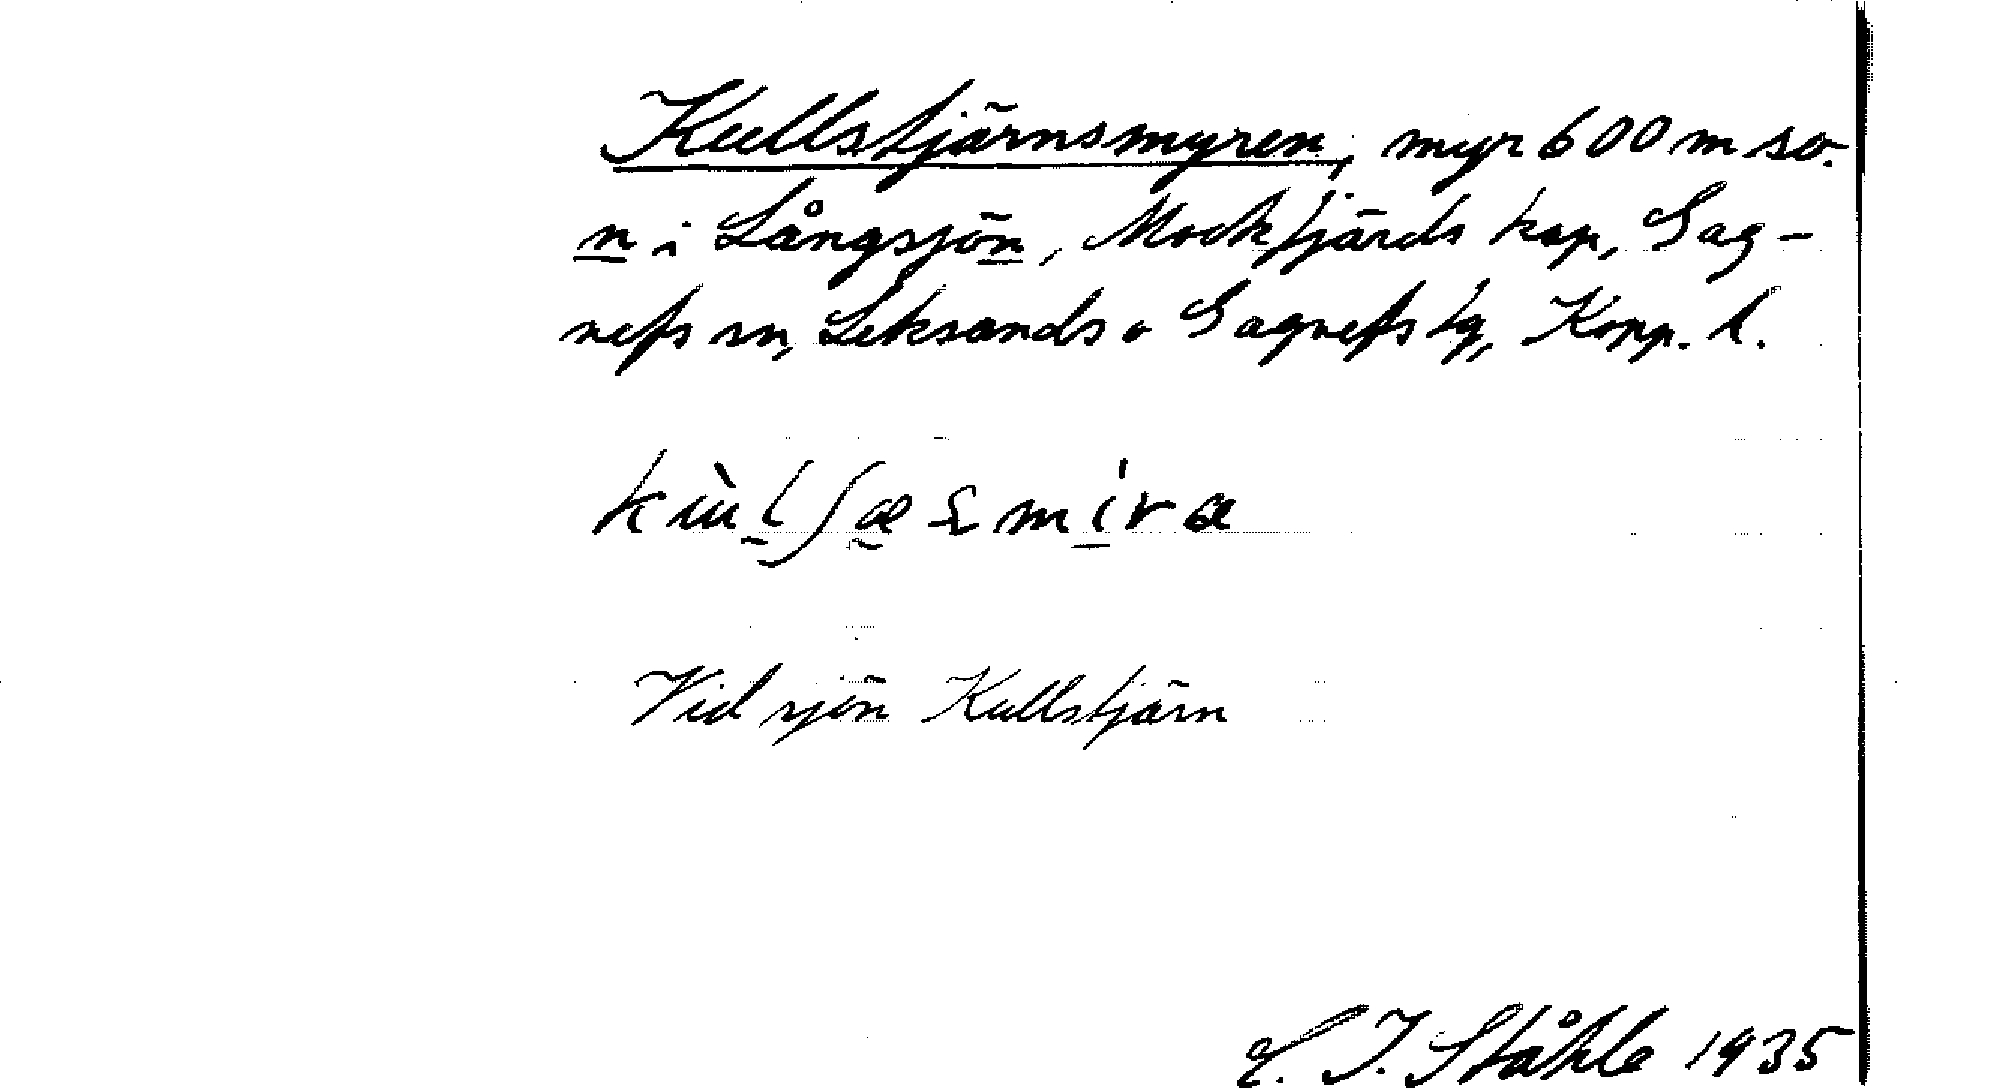 Kullstjärnsmyren, myr 600 m so.
n i Långsjön, Mockfjärds kap, Gag-
nefs sn, Leksands o Gagnefs tg, Kopp. l.
Vid sjön Kullstjärn
C. I. Ståhle 1935